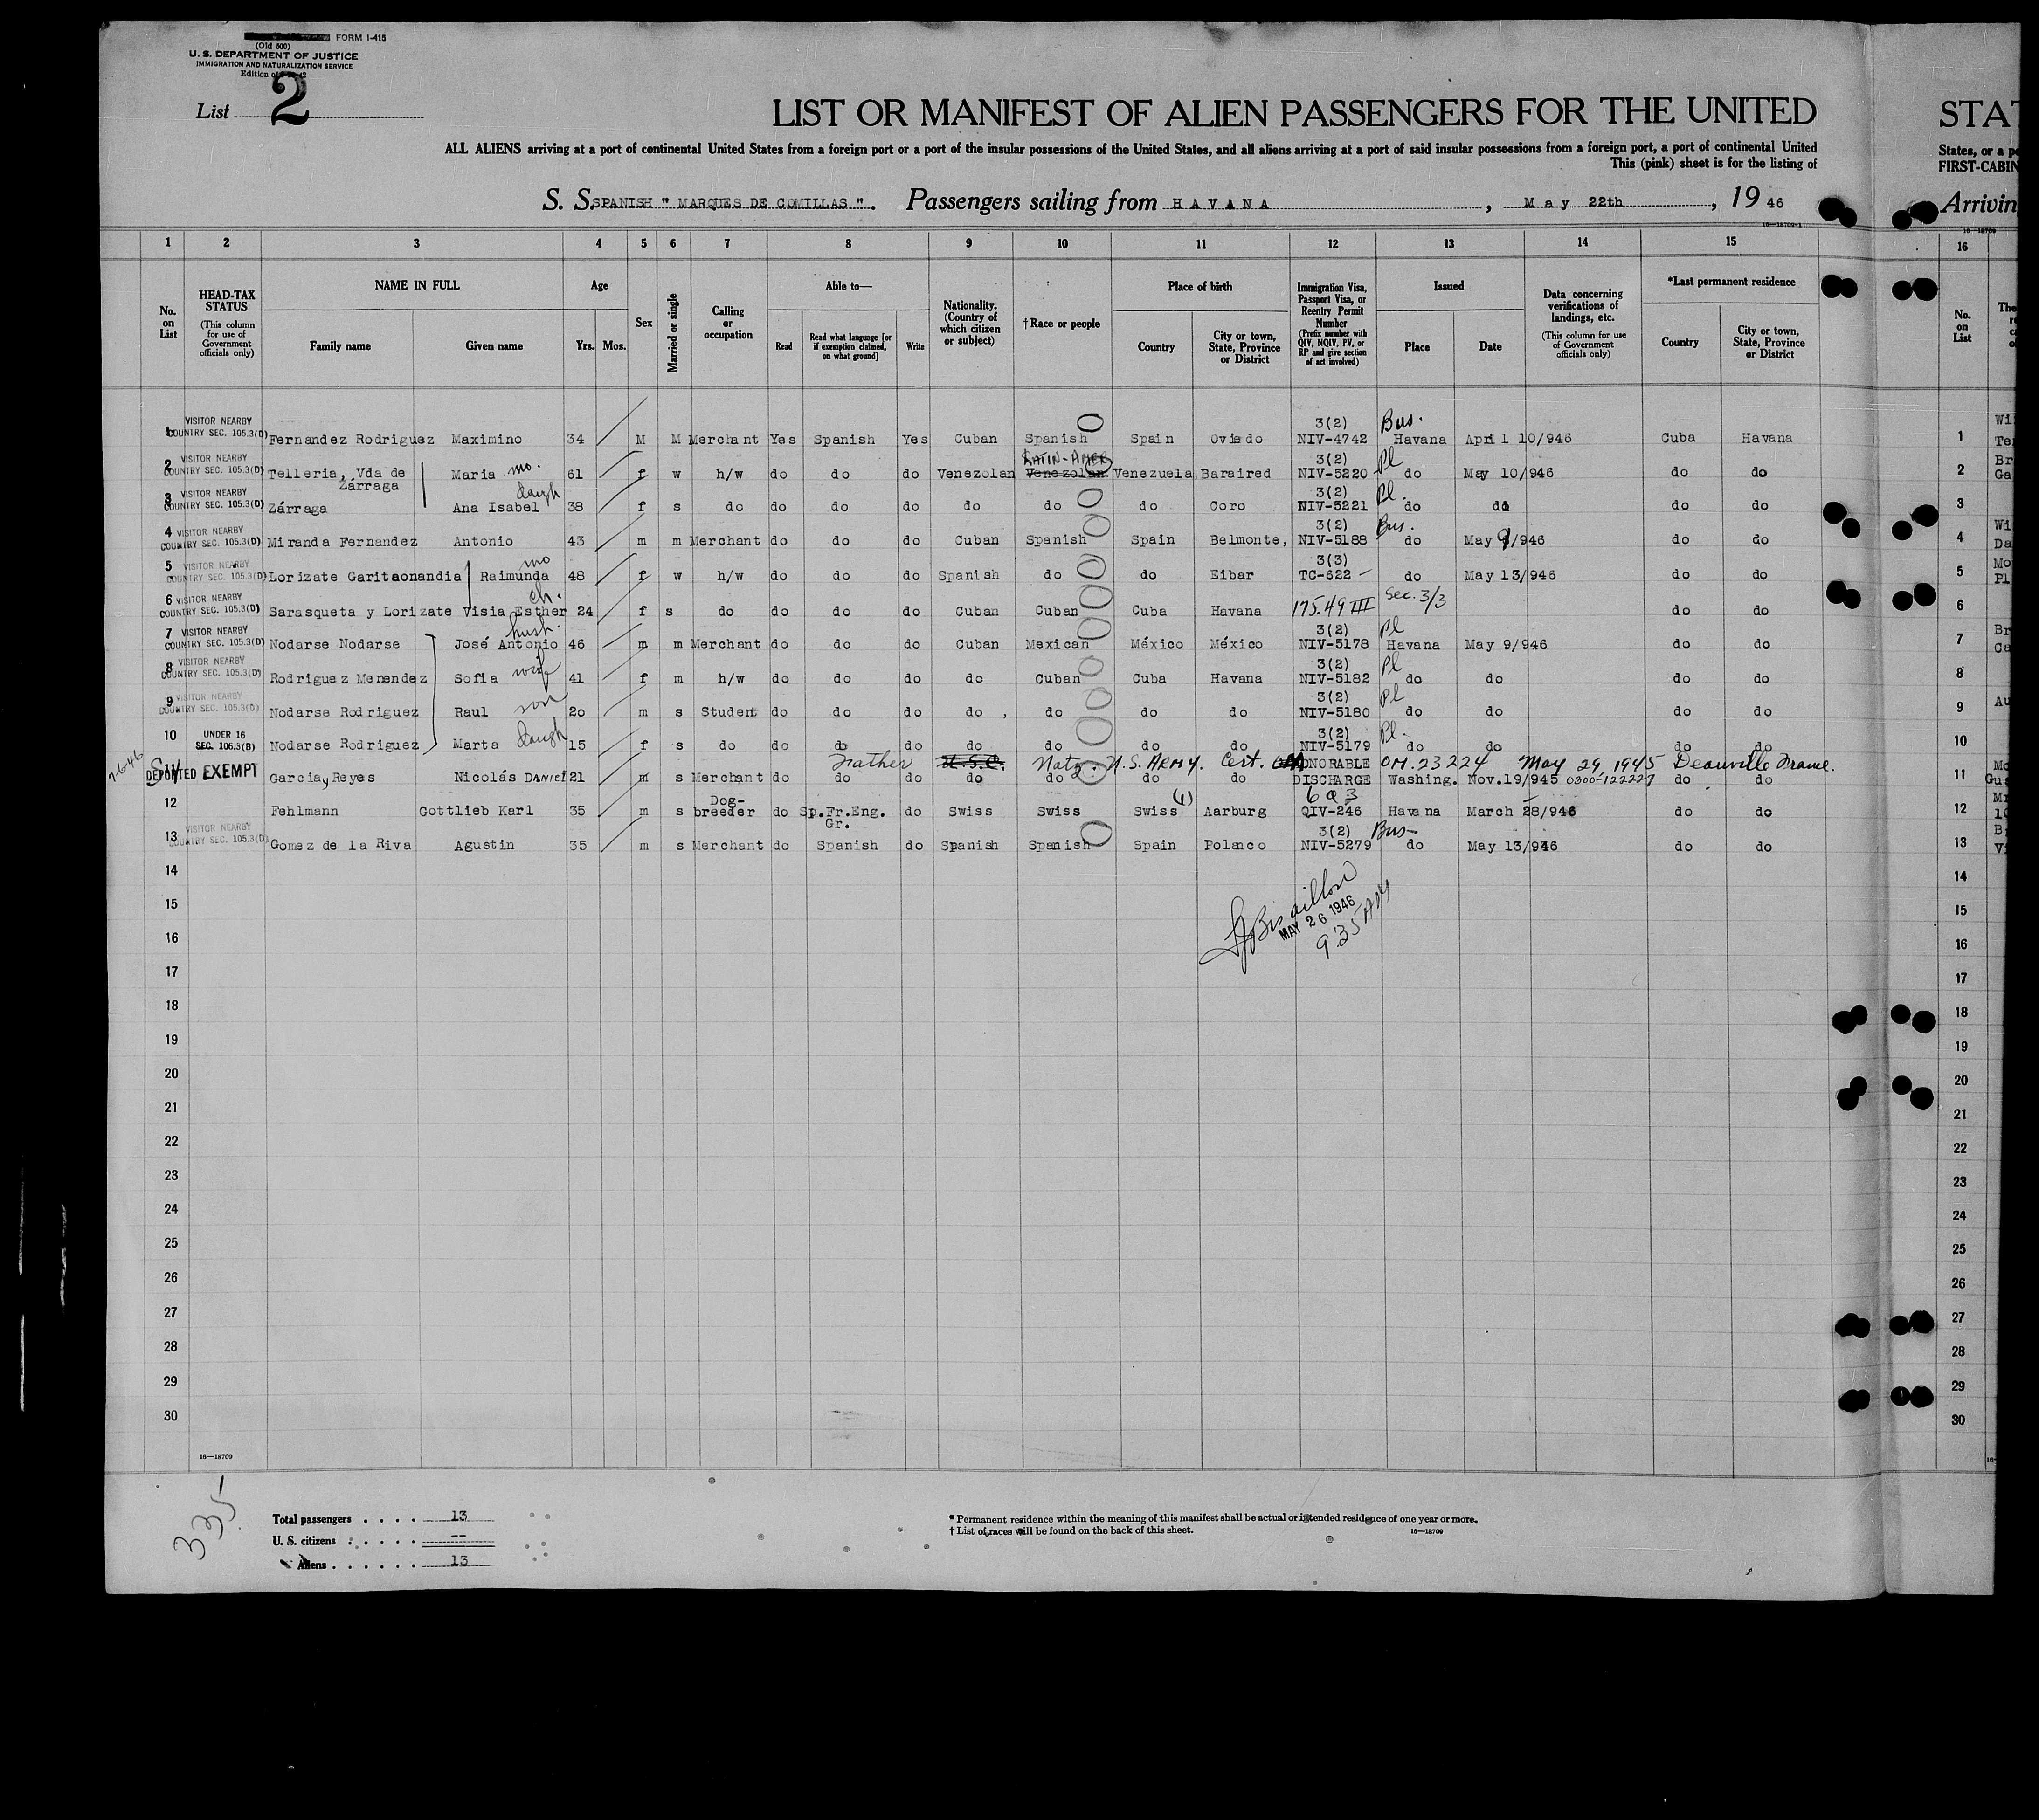 FORM I-415
(Old 500)
U. S. DEPARTMENT OF JUSTICE
IMMIGRATION AND NATURALIZATION SERVICE
Edition of
List 2
LIST OR MANIFEST OF ALIEN PASSENGERS FOR THE UNITED
STAT
ALL ALIENS arriving at a port of continental United States from a foreign port or a port of the insular possessions of the United States, and all aliens arriving at a port of said insular possessions from a foreign port, a port of continental United
States, or a po
This (pink) sheet is for the listing of
FIRST-CABIN
S. S. SPANISH " MARQUES DE COMILLAS ". Passengers sailing from HAVANA, May 22th, 19 46
Arrivin
16—18709-1
1 2 3 4 5 6 7 8 9 10 11 12 13 14 15 16
No. on List
HEAD-TAX STATUS (This column for use of Government officials only)
NAME IN FULL
Family name
Given name
Age
Yrs. Mos.
Sex
Married or single
Calling or occupation
Able to—
Read
Read what language [or if exemption claimed, on what ground]
Write
Nationality. (Country of which citizen or subject)
†Race or people
Place of birth
Country
City or town, State, Province or District
Immigration Visa, Passport Visa, or Reentry Permit Number (Prefix number with QIV, NQIV, PV, or RP and give section of act involved)
Issued
Place
Date
Data concerning verifications of landings, etc. (This column for use of Government officials only)
*Last permanent residence
Country
City or town, State, Province or District
No. on List
VISITOR NEARBY 3(2) Bus.
1 COUNTRY SEC. 105.3(D) Fernandez Rodriguez Maximino 34 M M Merchant Yes Spanish Yes Cuban Spanish Spain Oviedo NIV-4742 Havana April 10/946 Cuba Havana 1
VISITOR NEARBY LATIN-AMER 3(2) Pl
2 COUNTRY SEC. 105.3(D) Telleria, Vda de Zárraga Maria mo. 61 f w h/w do do do Venezolan Venezolan Venezuela Baraired NIV-5220 do May 10/946 do do 2
VISITOR NEARBY daugh 3(2) Pl.
3 COUNTRY SEC. 105.3(D) Zárraga Ana Isabel 38 f s do do do do do do do Coro NIV-5221 do do do do 3
VISITOR NEARBY 3(2) Bus.
4 COUNTRY SEC. 105.3(D) Miranda Fernandez Antonio 43 m m Merchant do do do Cuban Spanish Spain Belmonte, NIV-5188 do May 9/946 do do 4
VISITOR NEARBY mo 3(3)
5 COUNTRY SEC. 105.3(D) Lorizate Garitaonandia Raimunda 48 f w h/w do do do Spanish do do Eibar TC-622 — do May 13/946 do do 5
VISITOR NEARBY ch. Sec. 3/3
6 COUNTRY SEC. 105.3(D) Sarasqueta y Lorizate Visia Esther 24 f s do do do do Cuban Cuban Cuba Havana 175.49 III do do 6
VISITOR NEARBY husb. 3(2) Pl
7 COUNTRY SEC. 105.3(D) Nodarse Nodarse José Antonio 46 m m Merchant do do do Cuban Mexican México México NIV-5178 Havana May 9/946 do do 7
VISITOR NEARBY wife 3(2) Pl
8 COUNTRY SEC. 105.3(D) Rodriguez Menendez Sofia 41 f m h/w do do do do Cuban Cuba Havana NIV-5182 do do do do 8
VISITOR NEARBY son 3(2) Pl
9 COUNTRY SEC. 105.3(D) Nodarse Rodriguez Raul 20 m s Student do do do do do do do NIV-5180 do do do do 9
UNDER 16 daugh 3(2) Pl.
10 SEC. 105.3(B) Nodarse Rodriguez Marta 15 f s do do do do do do do do NIV-5179 do do do do 10
Father U.S.C. Natz. U.S. ARMY. Cert. OM.23224 May 29, 1945 Deauville France.
DEPORTED EXEMPT Garcia y Reyes Nicolás DANIEL 21 m s Merchant do do do do do do do HONORABLE DISCHARGE Washing. Nov.19/945 0300-122227 do do 11
12 Fehlmann Gottlieb Karl 35 m s Dog-breeder do Sp.Fr.Eng. Gr. do Swiss Swiss Swiss (1) Aarburg QIV-246 Havana March 28/946 do do 12
VISITOR NEARBY 3(2) Bus
13 COUNTRY SEC. 105.3(D) Gomez de la Riva Agustin 35 m s Merchant do Spanish do Spanish Spanish Spain Polanco NIV-5279 do May 13/946 do do 13
14 14
15 15
MAY 26 1946
9:35 AM
16 16
17 17
18 18
19 19
20 20
21 21
22 22
23 23
24 24
25 25
26 26
27 27
28 28
29 29
30 30
16—18709
335
Total passengers . . . . 13
U. S. citizens . . . . . --
Aliens . . . . . . 13
* Permanent residence within the meaning of this manifest shall be actual or intended residence of one year or more.
† List of races will be found on the back of this sheet.
16—18709